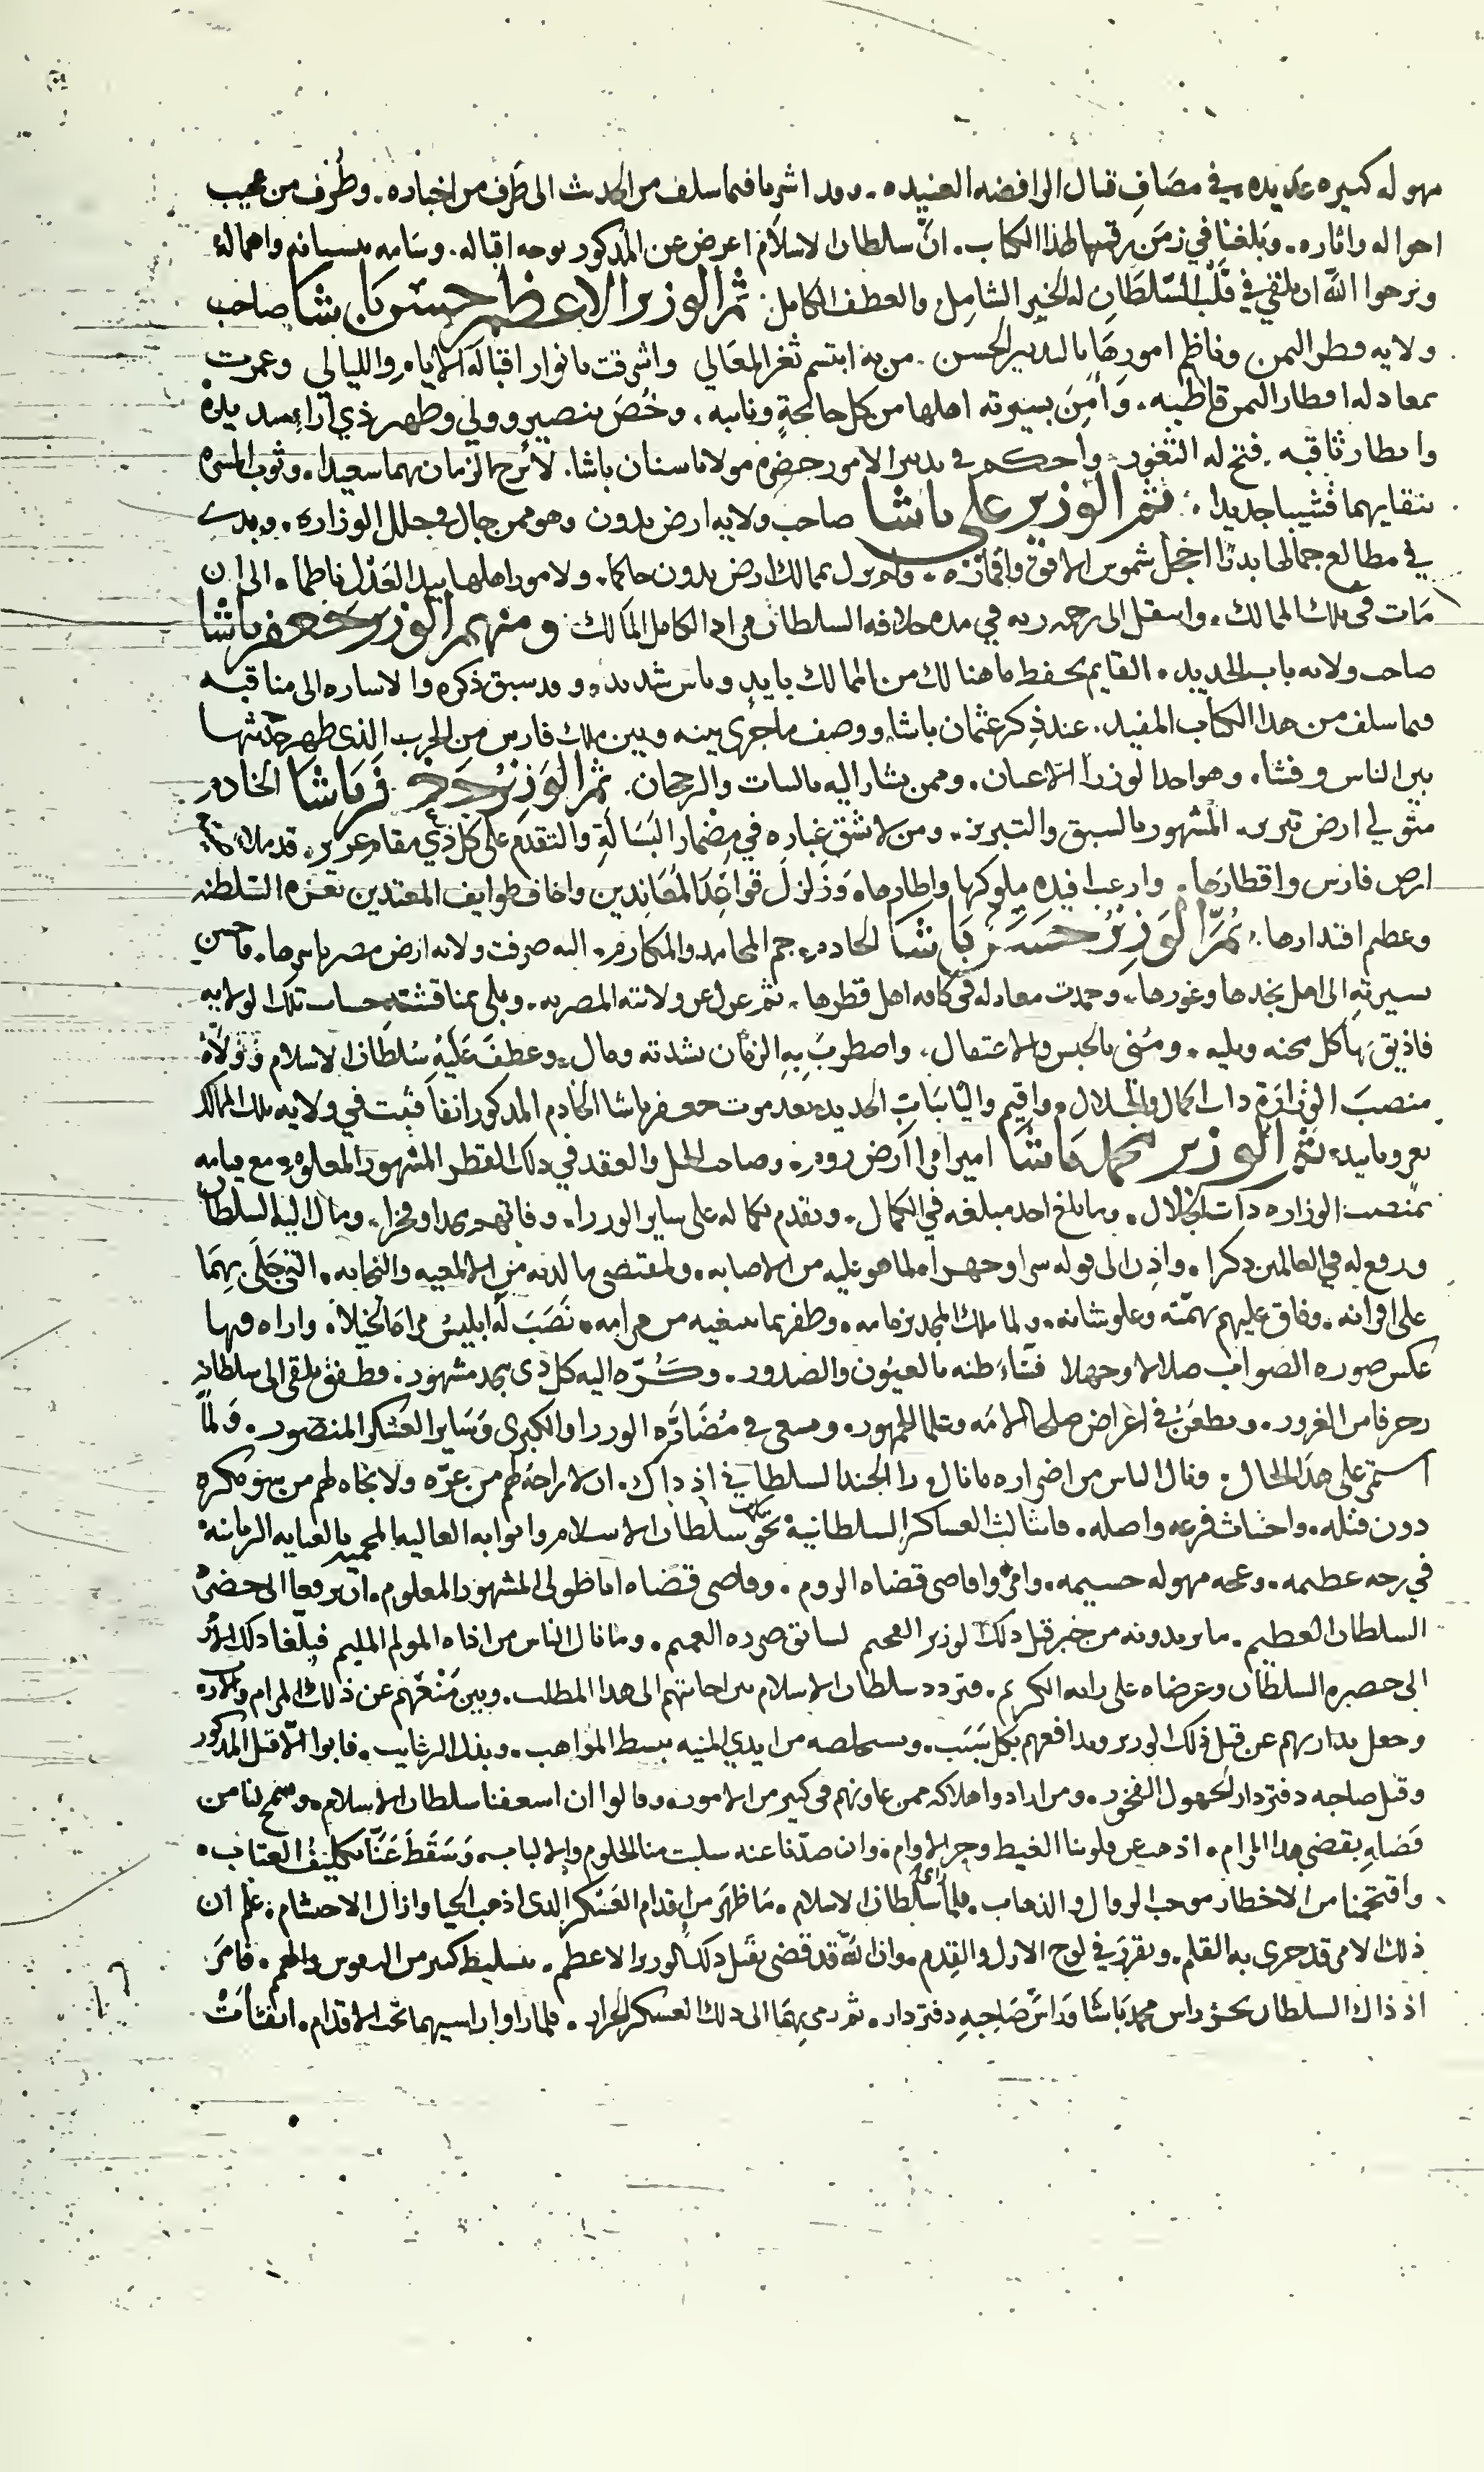 مهوله كبيره عديده في مصاف قتال الرافضه العنيده . وقد اشرنا فيما سلف من الحديث الى طرف من اخباره . وطرف من عجيب
احواله واثاره . وبلغنا في زمن رقمها لهذا الكتاب . ان سلطان الاسلام اعرض عن المذكور بوجه اقباله . وسامه بنسيانه واهماله
ونرجوا الله ان يلقي في قلب السلطان له الخير الشامل والعطف الكامل ثم الوزير الاعظم حسن باشا صاحب
ولايه قطر اليمن وناظم امورها بالتدبير الحسن . من به ابتسم ثغر المعالي واشرقت بانوار اقباله الايام والليالي وعمرت
بمعادله اقطار اليمن قاطبه . وأمن بسيرته اهلها من كل جائحة ونايبه . وخص بنصير وولي وظهير ذي آراء سديدة
وانظار ثاقبه . فتح له الثغور واحكم في تدبير الامور حضرة مولانا سنان باشا . لا برح الزمان بهما سعيدا . وثوب المسره
ببقايهما قشيبا جديدا . ثم الوزير علي باشا صاحب ولايه ارض بدون وهو ممن جال في حلل الوزاره . وبدى
في مطالع جمالها بدرا اخجل شموس الافق واقماره . ولم يزل بممالك ارض بدون حاكما . ولامور اهلها بيد العدل ناظما . الى ان
مات في تلك الممالك . وانتقل الى رحمه ربه في مده خلافه السلطان مراد الكامل المالك ومنهم الوزير جعفر باشا
صاحب ولايه باب الحديد . القايم بحفظ ما هنالك من الممالك بايد وباس شديد . وقد سبق ذكره والاشاره الى مناقبه
فيما سلف من هذا الكتاب المفيد . عند ذكر عثمان باشا ووصف ما جرى بينه وبين ملك فارس من الحرب الذي ظهر حديثها
بين الناس وفشا . وهو احد الوزرا الاعيان . وممن يشار اليه بالبنان . ثم الوزير جعفر باشا الخادم
متولي ارض تبريز . المشهور بالسبق والتبريز . ومن لا يشق غباره في مضمار البسالة والتقدم على كل ذي مقام عزيز . قد ملا
ارض فارس واقطارها . وارعب افيده ملوكها واطارها . وزلزل قواعد المعاندين واخاف طوايف المعتدين بعزه السلطنه
وعظم اقتدارها . ثم الوزير حسن باشا الخادم . جم المحامد والمكارم . اليه صرفت ولايه ارض مصر باسرها . فاحسن
سيرته الى اهل نجدها وغورها . وحمدت معادله في كافه اهل قطرها . ثم عزل عن ولايته المصريه . وبلي بمناقشته حساب تلك الولايه
فاذيق بها كل محنه وبليه . ومني بالحبس والاعتقال . واضطرب به الزمان بشدته ومال . وعطف عليه سلطان الاسلام وولاه
منصب الوزارة ذات الكمال والجلال . واقيم واليا بباب الحديد بعد موت جعفر باشا الخادم المذكور انفا فثبت في ولايه تلك الممالك
بعز وتاييد . ثم الوزير محمد باشا امير امرا ارض روم . وصاحب الحل والعقد في ذلك القطر المشهور المعلوم . مع قيامه
بمنصب الوزاره ذات الجلال . وما بلغ احد مبلغه في الكمال . وتقدم بكماله على ساير الوزرا . وفاتهم مجدا وفخرا . ومال اليه السلطان
ورفع له في العالمين ذكرا . واذن الى قوله سرا وجهرا . لما هو عليه من الاصابه . ولمقتضى ما لديه من الالمعيه والنجابه . التي جلى بهما
على اقرانه . وفاق عليهم بهمته وعلو شانه . ولما ملك المجد بزمامه . وظفر بما يبتغيه من مرامه . نصب له ابليس مراة الخيلاء . واراه فيها
عكس صوره الصواب ضلالا وجهلا فساء ظنه بالعيون والصدور . وكره اليه كل ذي مجد مشهور . وطفق يلقي الى سلطانه
زخرفا من الغرور . ويطعن في اغراض صلحا الامه وعلما الجمهور . ويسعى في مضارة الوزراء الكبرى وساير العسكر المنصور . ولما
استمر على هذا الحال . ونال الناس من اضراره ما نال ورا الجند السلطاني اذ ذاك . ان لا راحة لهم من عزه ولا نجاه لهم من سوء مكره
دون قتله . واجتثاث فرعه واصله . فانثالت العساكر السلطانية نحو باب سلطان الاسلام وابوابه العاليه المحميه بالعنايه الربانية
في رجه عظيمه . وعجه مهوله جسيمه . وامروا قاضي قضاه الروم . وقاضي قضاه اناطولي المشهور المعلوم . ان يرفعا الى حضرة
السلطان العظيم . ما يريدونه من خبر قتل ذلك الوزير الفخيم لسابق ضرره العميم . وما نال الناس من اذاه المولم المليم فبلغا ذلك الامر
الى حضره السلطان وعرضاه على رايه الكريم . فتردد سلطان الاسلام بين اجابتهم الى هذا المطلب . وبين منعهم عن ذلك المرام
وجعل يداريهم عن قتل ذلك الوزير ويدافعهم بكل سبب . ويستخلصه من ايدي المنيه ببسط المواهب . وبذل الرغايب . فابوا الا قتل المذكور
وقتل صاحبه دفتردار الجهول الفخور . ومن ارادوا هلاكه ممن عاونهم في كثير من الامور . وقالوا ان اسعفنا سلطان الاسلام . وسمح لنا من
قضايه بقضي هذا المرام . اذهب عن قلوبنا الغيظ وحر الاوام . وان صدنا عنه سلبت منا الحلوم والالباب . وسقط عنا تكليف العتاب .
واقتحمنا من الاخطار موجب الزوال والذهاب . فلما راى سلطان الاسلام . ما ظهر من اقدام العسكر الذي اذهب الحيا وازال الاحتشام . علم ان
ذلك الامر قد جرى به القلم . وتقرر في لوح الازل والقدم . وان الله قد قضى بقتل ذلك الوزير الاعظم . بتسليط كثير من النفوس والهمم . فامر
اذ ذاك السلطان بحز راس محمد باشا وراس صاحبه دفتردار . ثم رمى بهما الى ذلك العسكر الجرار . فلما راوا راسيهما تحت الاقدام . انفثات